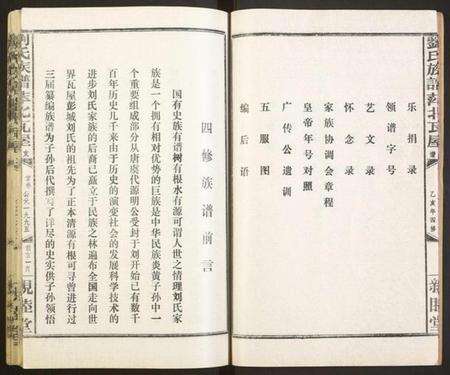 劉氏族譜
乙亥年四修
乐捐录
领谱字号
艺文录
怀念录
家族协调会章程
皇帝年号对照
广传公遗训
五服图
编后语
四修族谱前言
国有史族有谱树有根水有源可谓人世之情理刘氏家
族是一个拥有相对优势的巨族是中华民族炎黄子孙中一
个重要组成部分从唐虞代源明公受封于刘开始已有数千
百年历史几千来由于历史的演变社会的发展科学技术的
进步刘氏家族的后裔已矗立于民族之林遍布全国走向世
界瓦屋彭城刘氏的祖先为了正本清源有根可寻曾进行过
三届纂编族谱为子孙后代撰写了详尽的史实供子孙领悟